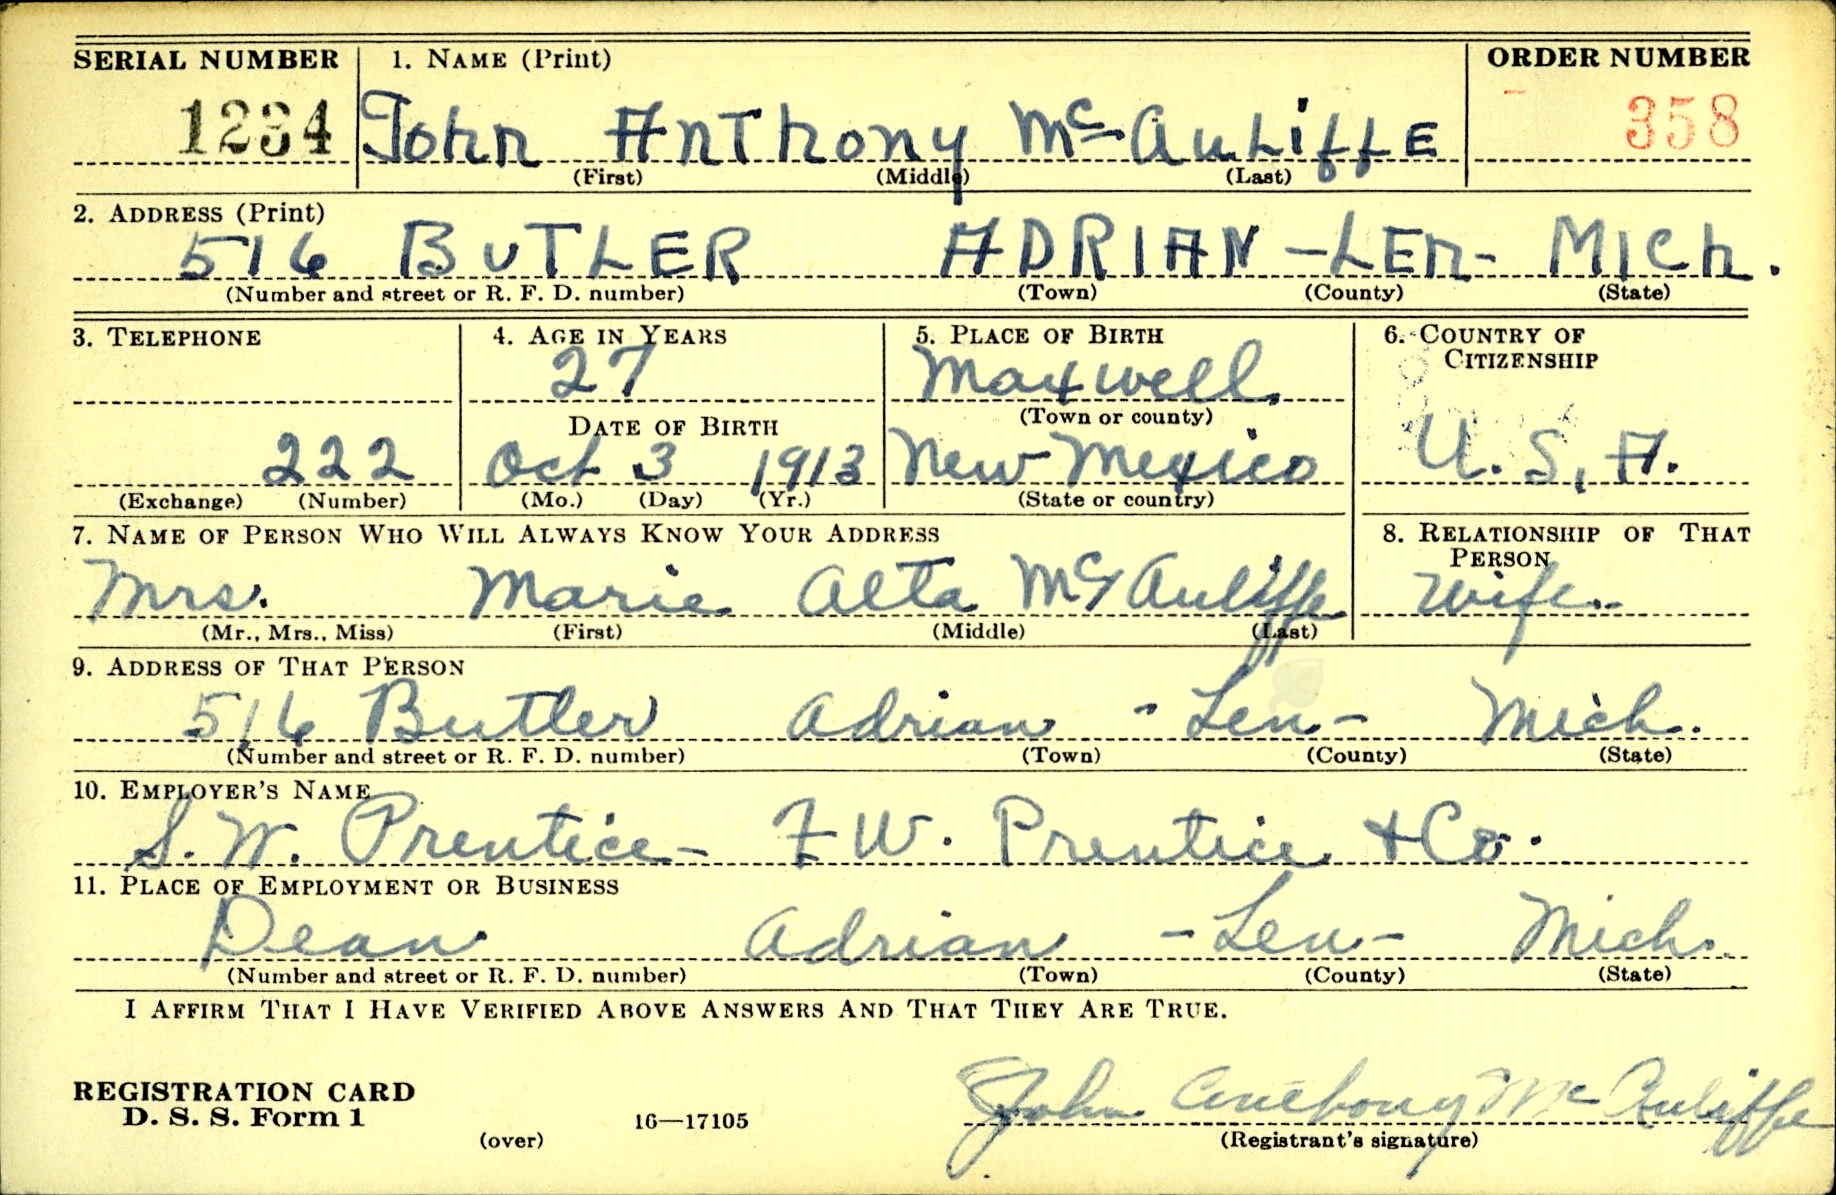 SERIAL NUMBER 1. NAME (Print) ORDER NUMBER
1234 John Anthony McAuliffe 358
(First) (Middle) (Last)
2. ADDRESS (Print)
516 BUTLER ADRIAN - LEN - MICH.
(Number and street or R. F. D. number) (Town) (County) (State)
3. TELEPHONE 4. AGE IN YEARS 5. PLACE OF BIRTH 6. COUNTRY OF CITIZENSHIP
27 Maxwell
DATE OF BIRTH (Town or county)
222 Oct 3 1913 New Mexico U. S. A.
(Exchange) (Number) (Mo.) (Day) (Yr.) (State or country)
7. NAME OF PERSON WHO WILL ALWAYS KNOW YOUR ADDRESS 8. RELATIONSHIP OF THAT PERSON
Mrs. Marie Alta McAuliffe Wife
(Mr., Mrs., Miss) (First) (Middle) (Last)
9. ADDRESS OF THAT PERSON
516 Butler Adrian - Len - Mich.
(Number and street or R. F. D. number) (Town) (County) (State)
10. EMPLOYER'S NAME
S. W. Prentice - F W. Prentice + Co.
11. PLACE OF EMPLOYMENT OR BUSINESS
Dean Adrian - Len - Mich.
(Number and street or R. F. D. number) (Town) (County) (State)
I AFFIRM THAT I HAVE VERIFIED ABOVE ANSWERS AND THAT THEY ARE TRUE.
REGISTRATION CARD
D. S. S. Form 1 16—17105 John Anthony McAuliffe
(over) (Registrant's signature)